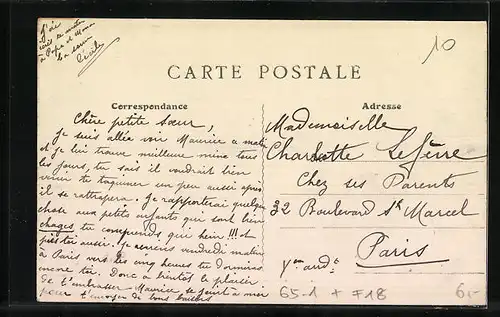 J'ai
écrit ce matin
à Papa et Maman
ta sœur
Cécile
10
CARTE POSTALE
Correspondance
Adresse
Chère petite sœur,
Je suis allée voir Maurice ce matin
et je lui trouve meilleure mine tous
les jours, tu sais il voudrait bien
venir te taquiner un peu aussi après
il se rattrapera. Je rapporterai quelque
chose aux petits enfants qui sont bien
chages, tu comprends qui hein !!! et
puis toi aussi. Je reviens vendredi matin
à Paris vers les cinq heures tu dormiras
encore toi. Donc à bientôt le plaisir
de t'embrasser Maurice se joint à moi
pour t'envoyer de bons baisers
Mademoiselle
Charlotte Lefèvre
Chez ses Parents
32 Boulevard St Marcel
Paris
65-1 + F18
6.-